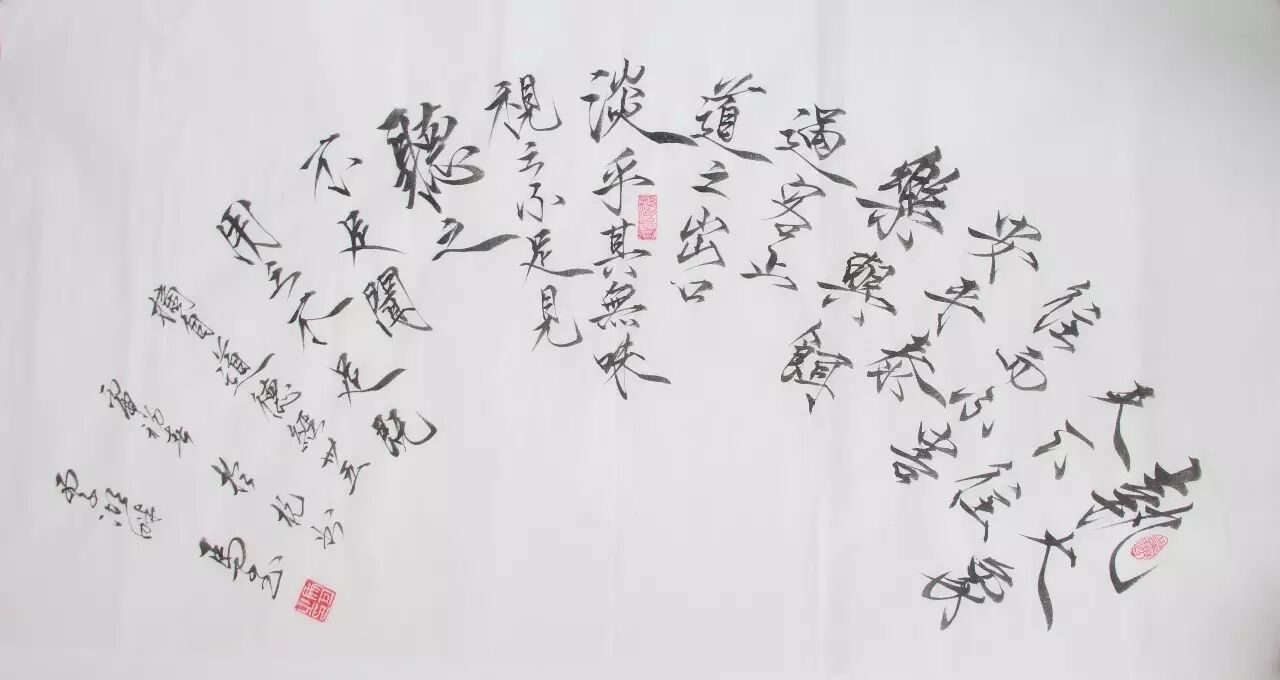 執大象
天下往
往而不害
安平泰
樂與餌
過客止
道之出口
淡乎其無味
視之不足見
聽之
不足聞
用之不足既
摘自道德經卅五